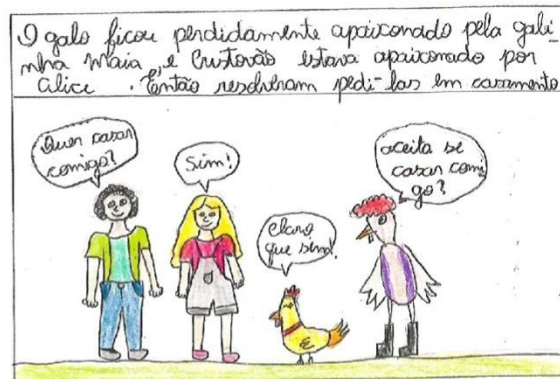 O galo ficou perdidamente apaixonado pela gali-
nha Maia, e Cristovão estava apaixonado por
Alice. Então resolveram pedi-las em casamento
Quer casar
comigo?
Sim!
claro
que sim!
aceita se
casar comi
go?